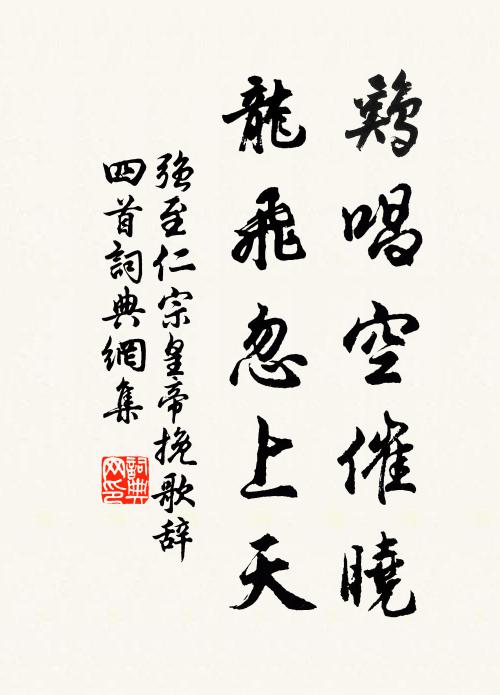 鷄唱空催曉
龍飛忽上天
强至仁宗皇帝挽歌辞
四首詞典網集
詞典網印